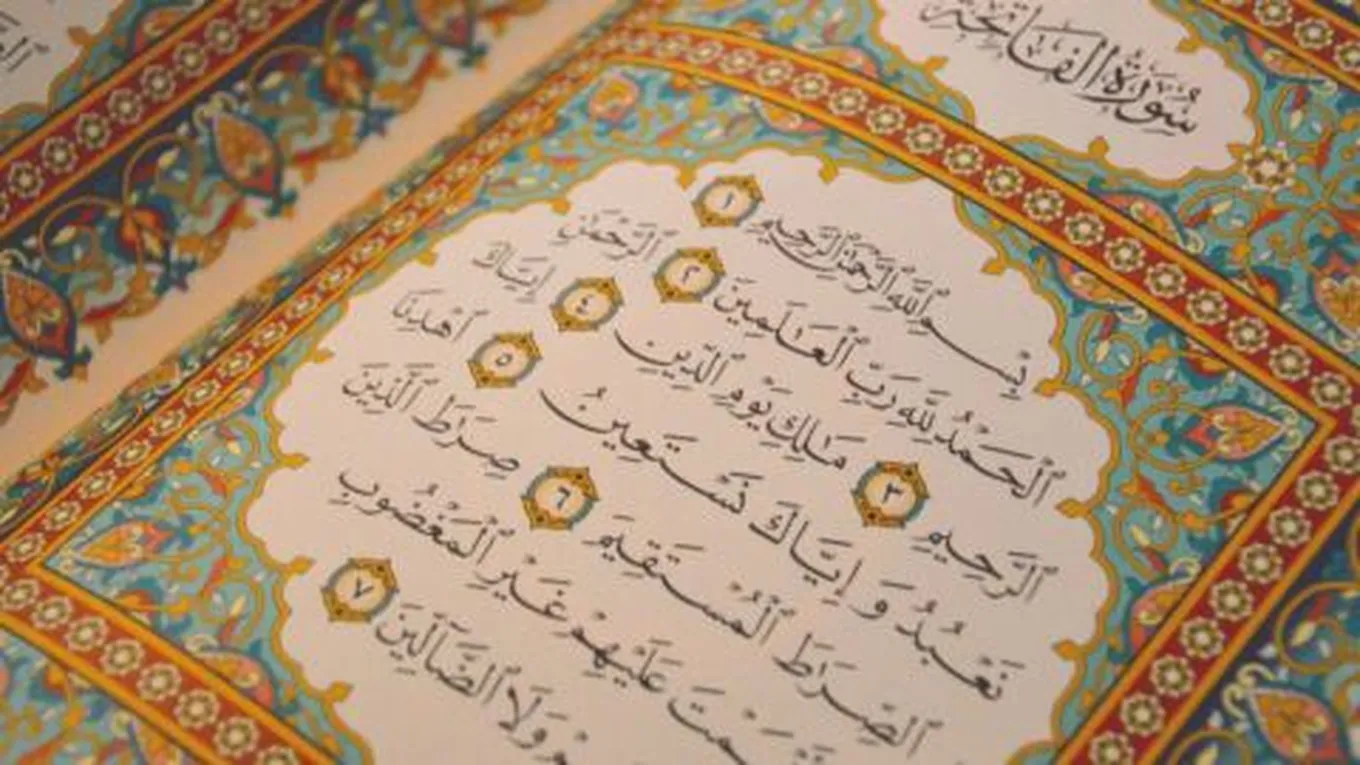 سُورَةُ الفَاتِحَةِ
بِسْمِ ٱللَّهِ ٱلرَّحْمَٰنِ ٱلرَّحِيمِ ١
ٱلْحَمْدُ لِلَّهِ رَبِّ ٱلْعَٰلَمِينَ ٢ ٱلرَّحْمَٰنِ
ٱلرَّحِيمِ ٣ مَٰلِكِ يَوْمِ ٱلدِّينِ ٤ إِيَّاكَ
نَعْبُدُ وَإِيَّاكَ نَسْتَعِينُ ٥ ٱهْدِنَا
ٱلصِّرَٰطَ ٱلْمُسْتَقِيمَ ٦ صِرَٰطَ ٱلَّذِينَ
عَلَيْهِمْ غَيْرِ ٱلْمَغْضُوبِ
وَلَا ٱلضَّآلِّينَ ٧